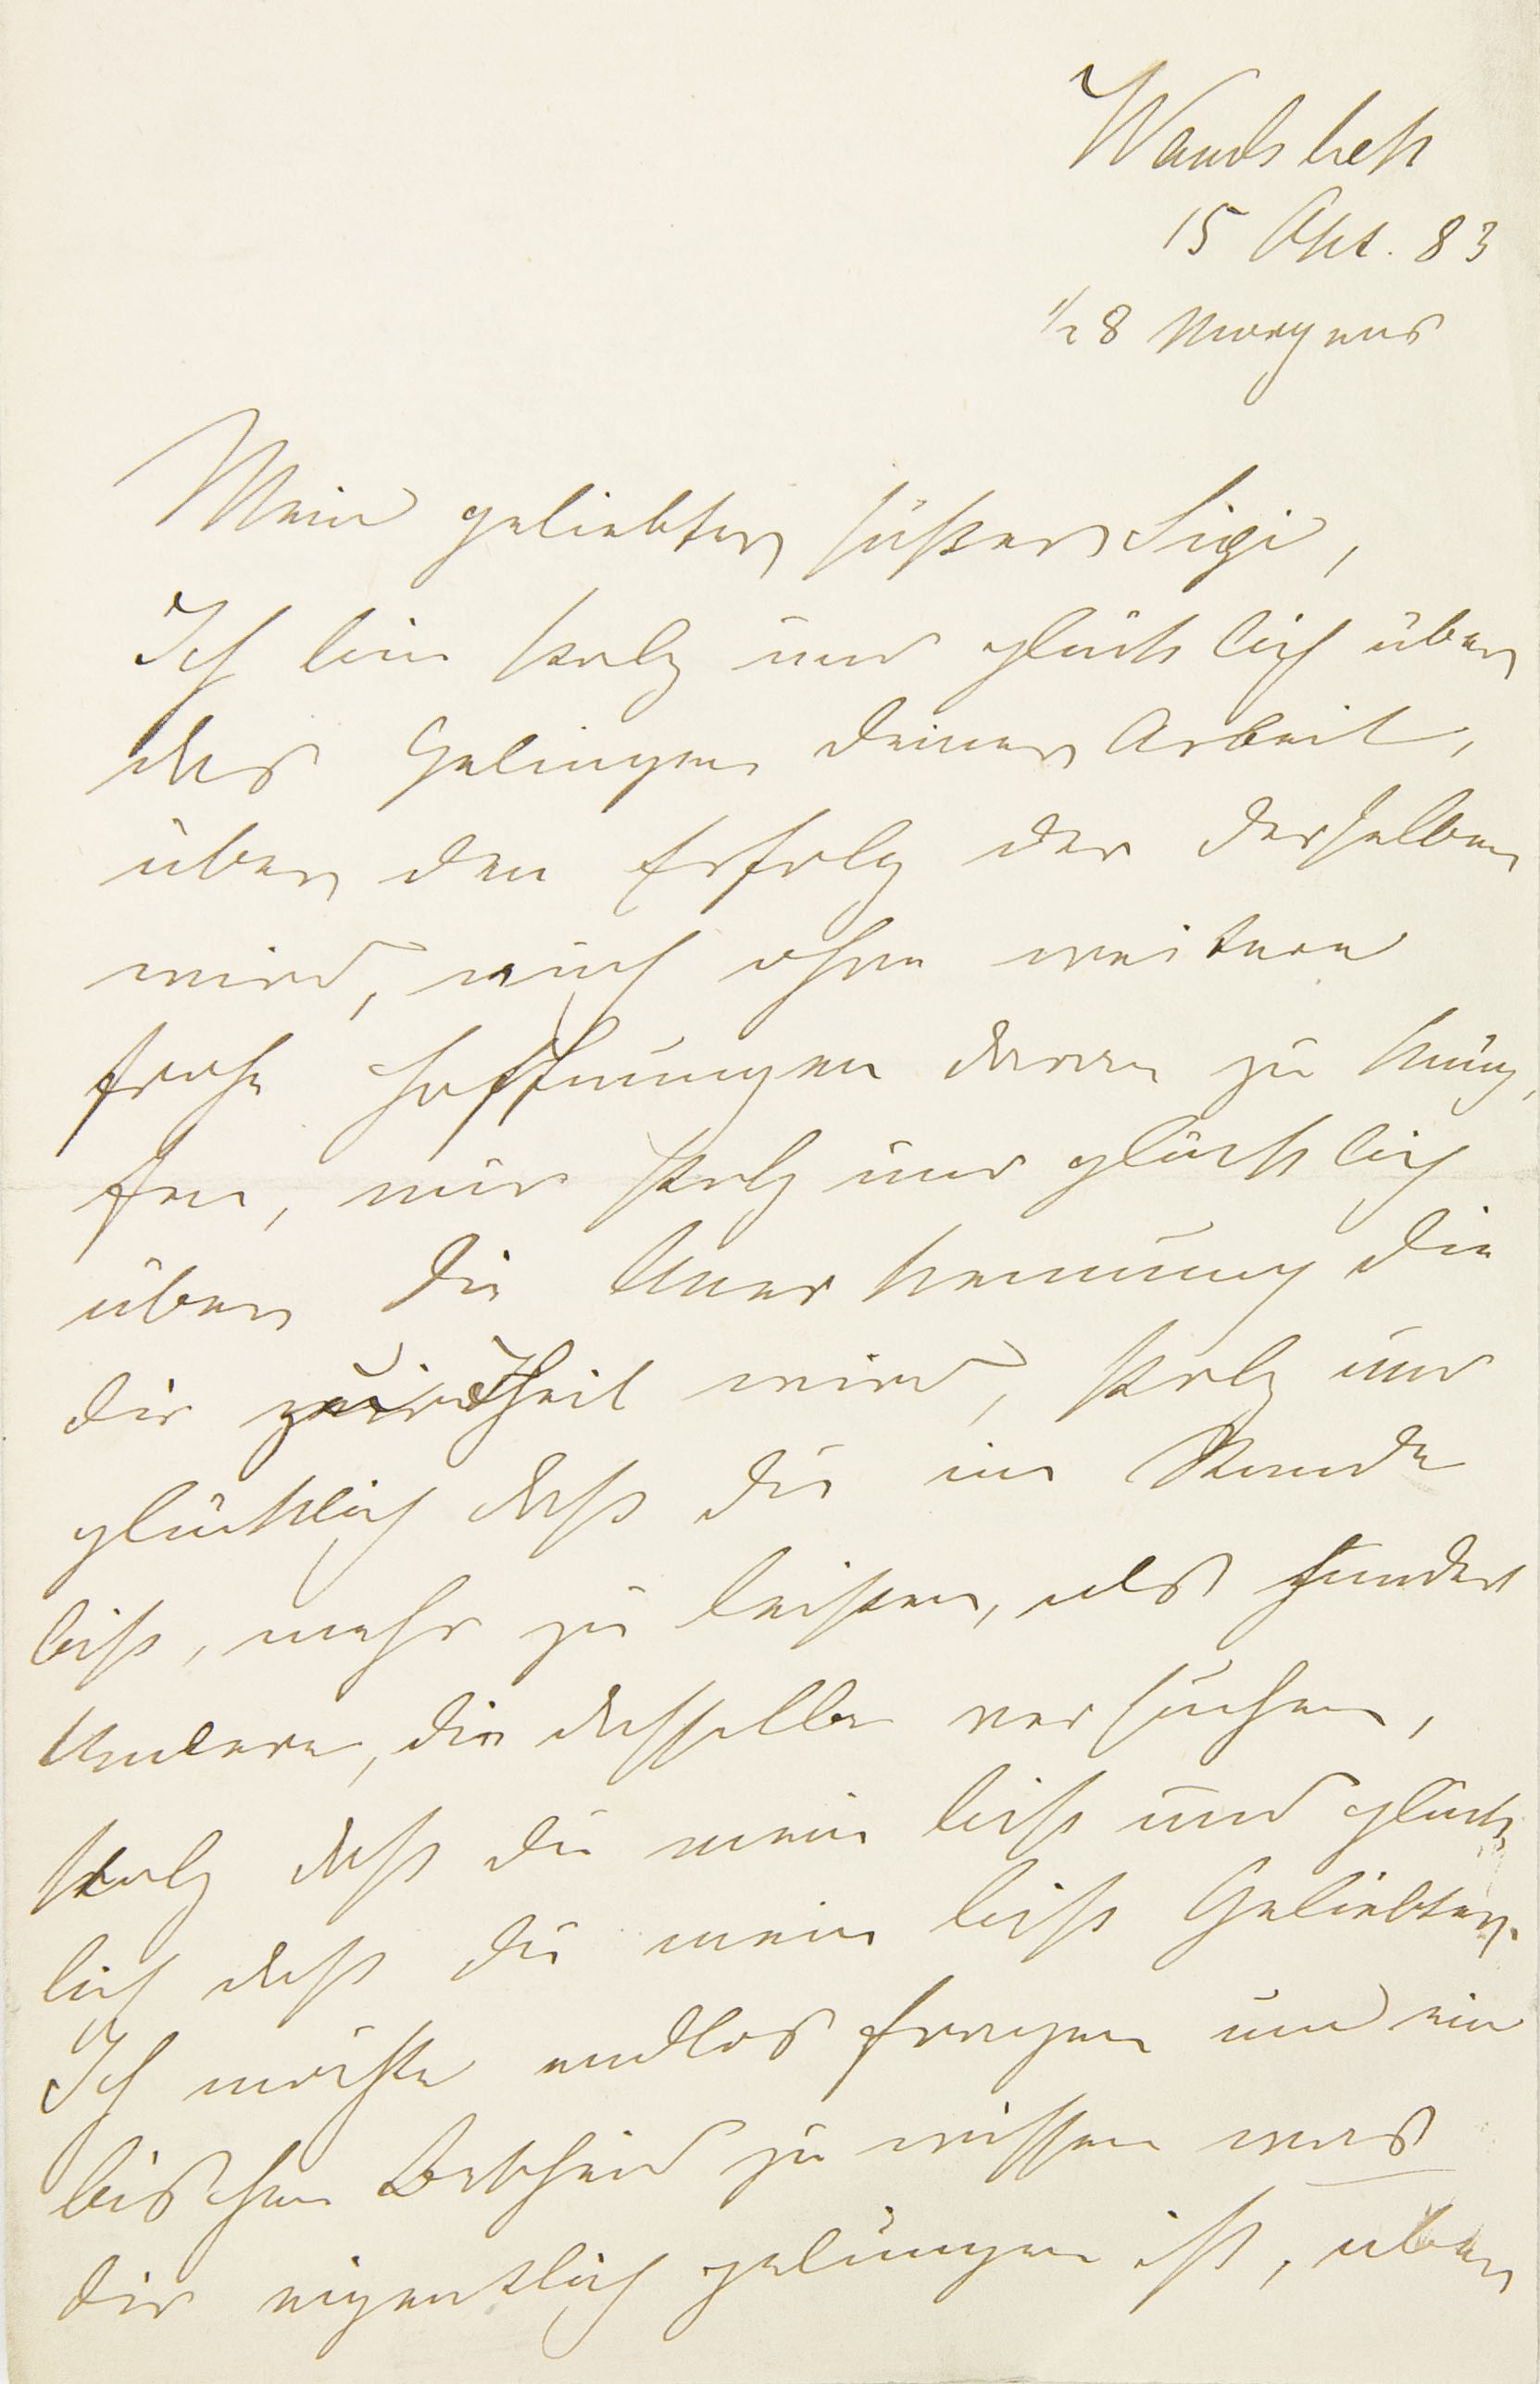 Wandsbek
15 Okt. 83
½ 8 Morgens
Mein geliebter süßer Sigi,
Ich bin stolz und glücklich über
das Gelingen deiner Arbeit,
über den Erfolg der derselben
wird, auch ohne weitere
frohe Hoffnungen daran zu knüp-
fen, nur stolz und glücklich
über die Anerkennung die
dir zu Theil wird, stolz und
glücklich daß du im Stande
bist, mehr zu leisten, als hundert
Andere, die dasselbe versuchen,
stolz daß du mein bist und glück-
lich daß du mein bist Geliebter.
Ich möchte endlos fragen um ein
bischen Bescheid zu wissen was
dir eigentlich gelungen ist, aber